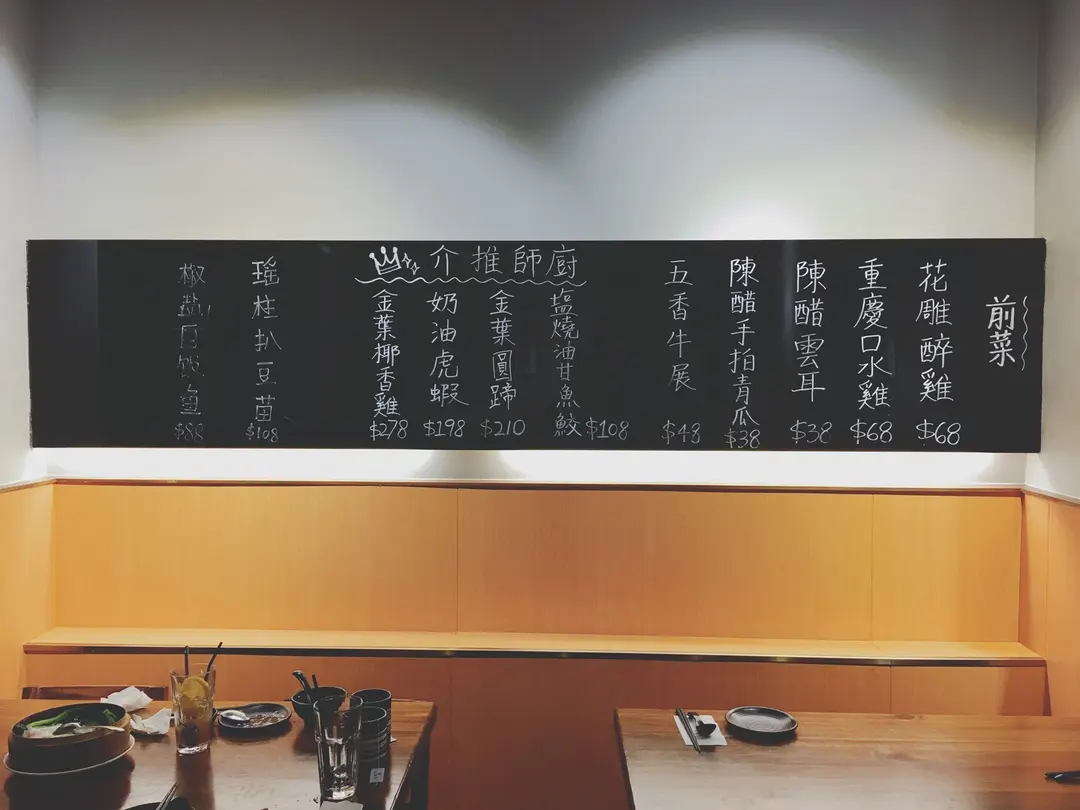 前菜
花雕醉雞
$68
重慶口水雞
$68
陳醋雲耳
$38
陳醋手拍青瓜
$38
五香牛展
$48
廚師推介
塩燒油甘魚鮫
$108
金葉圓蹄
$210
奶油虎蝦
$198
金葉椰香雞
$278
瑤柱扒豆苗
$108
椒盐
$88